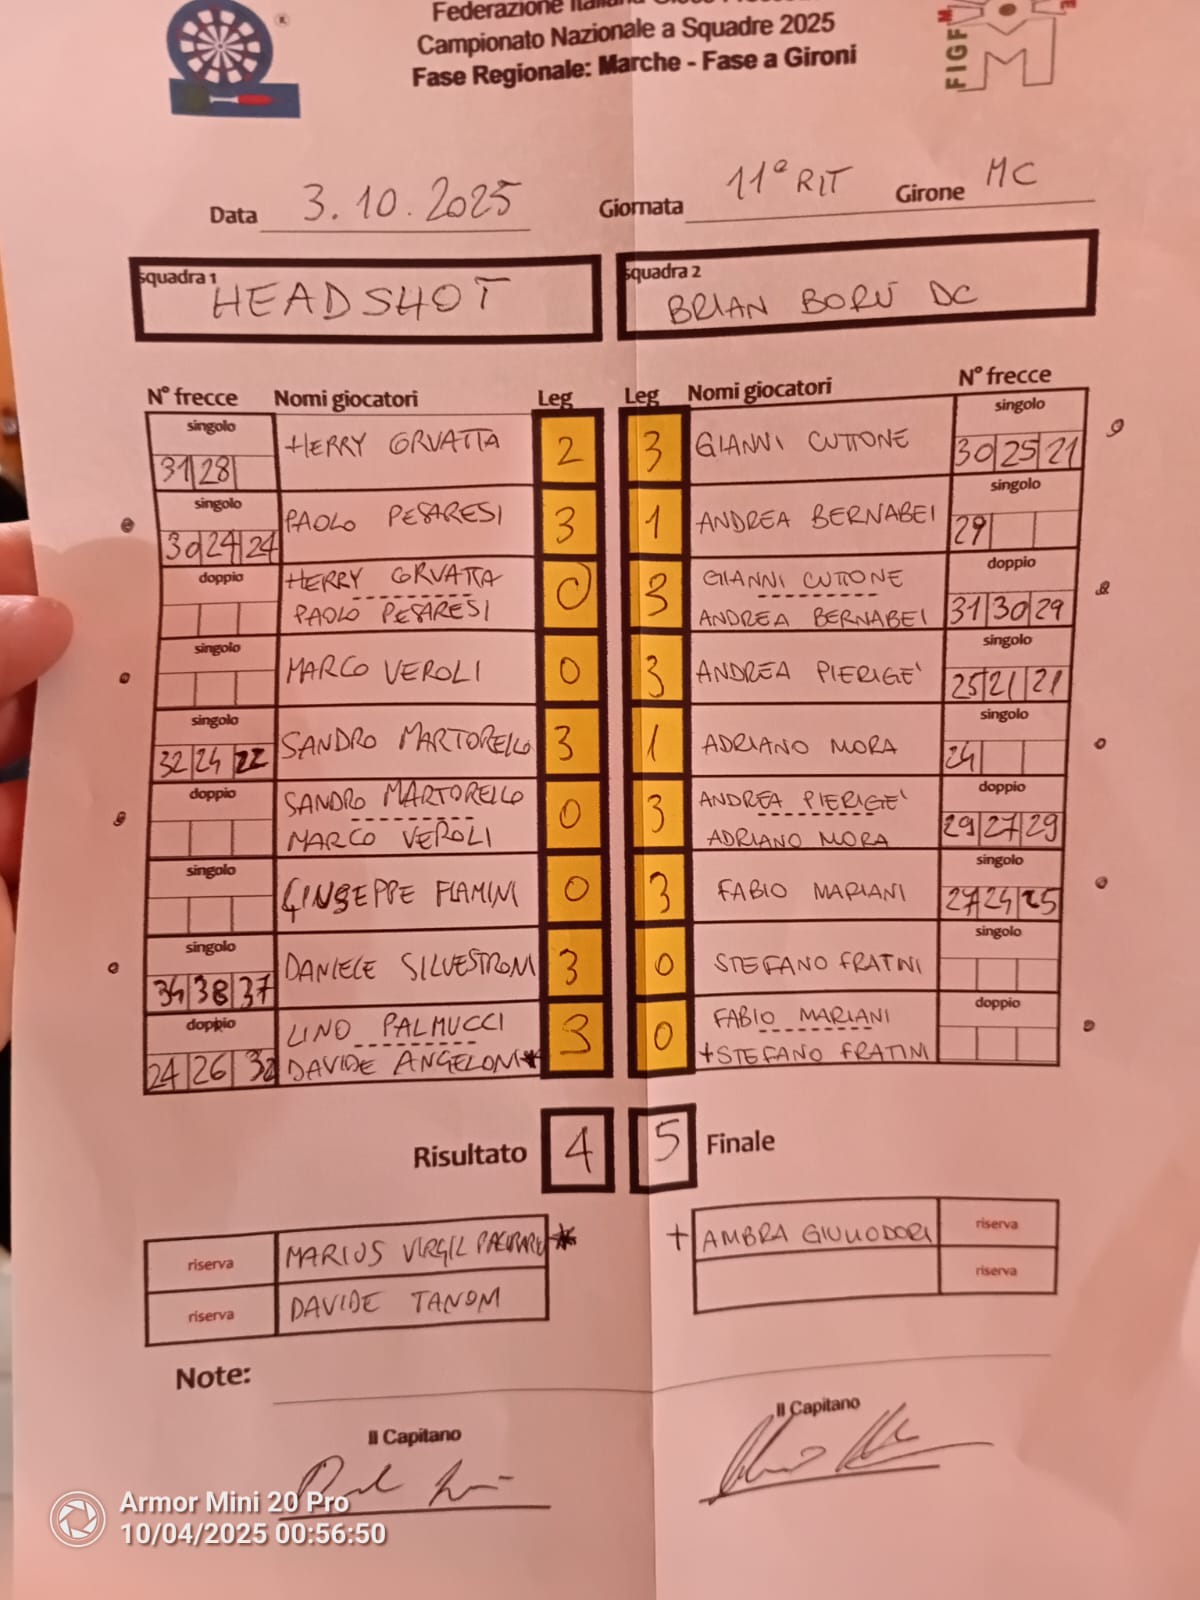 Federazione
Campionato Nazionale a Squadre 2025
Fase Regionale: Marche - Fase a Gironi
FIGF
M
Data 3.10.2025 Giornata 11ª RIT Girone MC
squadra 1 HEADSHOT
squadra 2 BRIAN BORÙ DC
N° frecce Nomi giocatori Leg Leg Nomi giocatori N° frecce
singolo 31 28 HERRY GRVATTA 2 3 GIANNI CUTTONE singolo 30 25 21
singolo 30 24 24 PAOLO PESARESI 3 1 ANDREA BERNABEI singolo 29
doppio HERRY GRVATTA 0 3 GIANNI CUTTONE doppio 31 30 29
PAOLO PESARESI ANDREA BERNABEI
singolo MARCO VEROLI 0 3 ANDREA PIERIGE' singolo 25 21 21
singolo 32 24 22 SANDRO MARTORELLO 3 1 ADRIANO MORA singolo 24
doppio SANDRO MARTORELLO 0 3 ANDREA PIERIGE' doppio 29 27 29
MARCO VEROLI ADRIANO MORA
singolo GIUSEPPE FLAMINI 0 3 FABIO MARIANI singolo 27 24 25
singolo 34 38 37 DANIELE SILVESTRONI 3 0 STEFANO FRATINI singolo
doppio 24 26 32 LINO PALMUCCI 3 0 FABIO MARIANI doppio
DAVIDE ANGELONI* +STEFANO FRATINI
Risultato 4 5 Finale
riserva MARIUS VIRGIL * + AMBRA GIULIODORI riserva
riserva DAVIDE TANONI riserva
Note:
Il Capitano Il Capitano
Armor Mini 20 Pro
10/04/2025 00:56:50